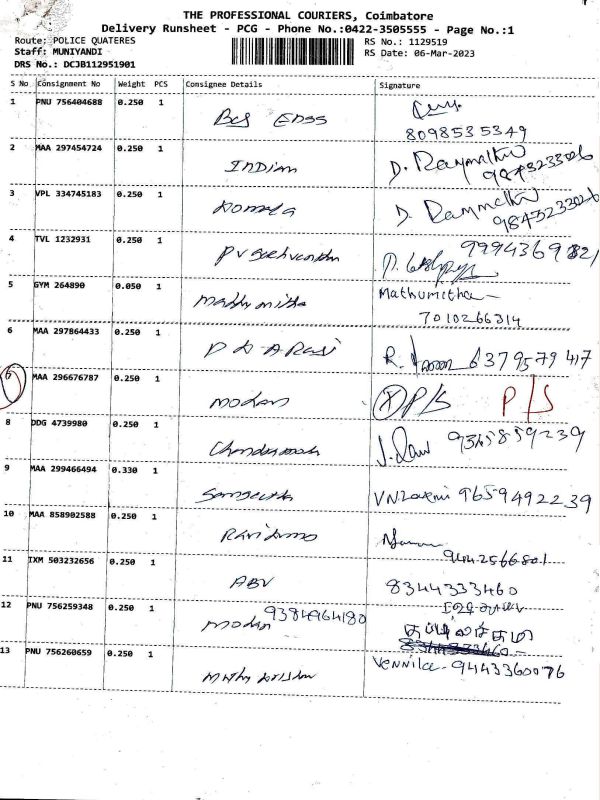 THE PROFESSIONAL COURIERS, Coimbatore
Delivery Runsheet - PCG - Phone No.:0422-3505555 - Page No.:1
Route: POLICE QUATERES RS No.: 1129519
Staff: MUNIYANDI RS Date: 06-Mar-2023
DRS No.: DCJB112951901
S No Consignment No Weight PCS Consignee Details Signature
1 PNU 756404688 0.250 1
8098535349
2 MAA 297454724 0.250 1 Indian D.
9843233026
3 VPL 334745183 0.250 1 D.
9843233026
4 TVL 1232931 0.250 1 9994369821
5 GYM 264890 0.050 1 Madhumitha Mathumitha
7010266314
6 MAA 297864433 0.250 1 R. 6379579417
MAA 296676787 0.250 1 Mohan P/S P/S
8 DDG 4739980 0.250 1 J. 9365859239
9 MAA 299466494 0.330 1 Sangeetha 9659492239
10 MAA 858902588 0.250 1
9442566801
11 IXM 503232656 0.250 1 ABV 8344333460
12 PNU 756259348 0.250 1 Mohan 9384964180
8344333460
13 PNU 756260659 0.250 1 Vennila - 9443360076